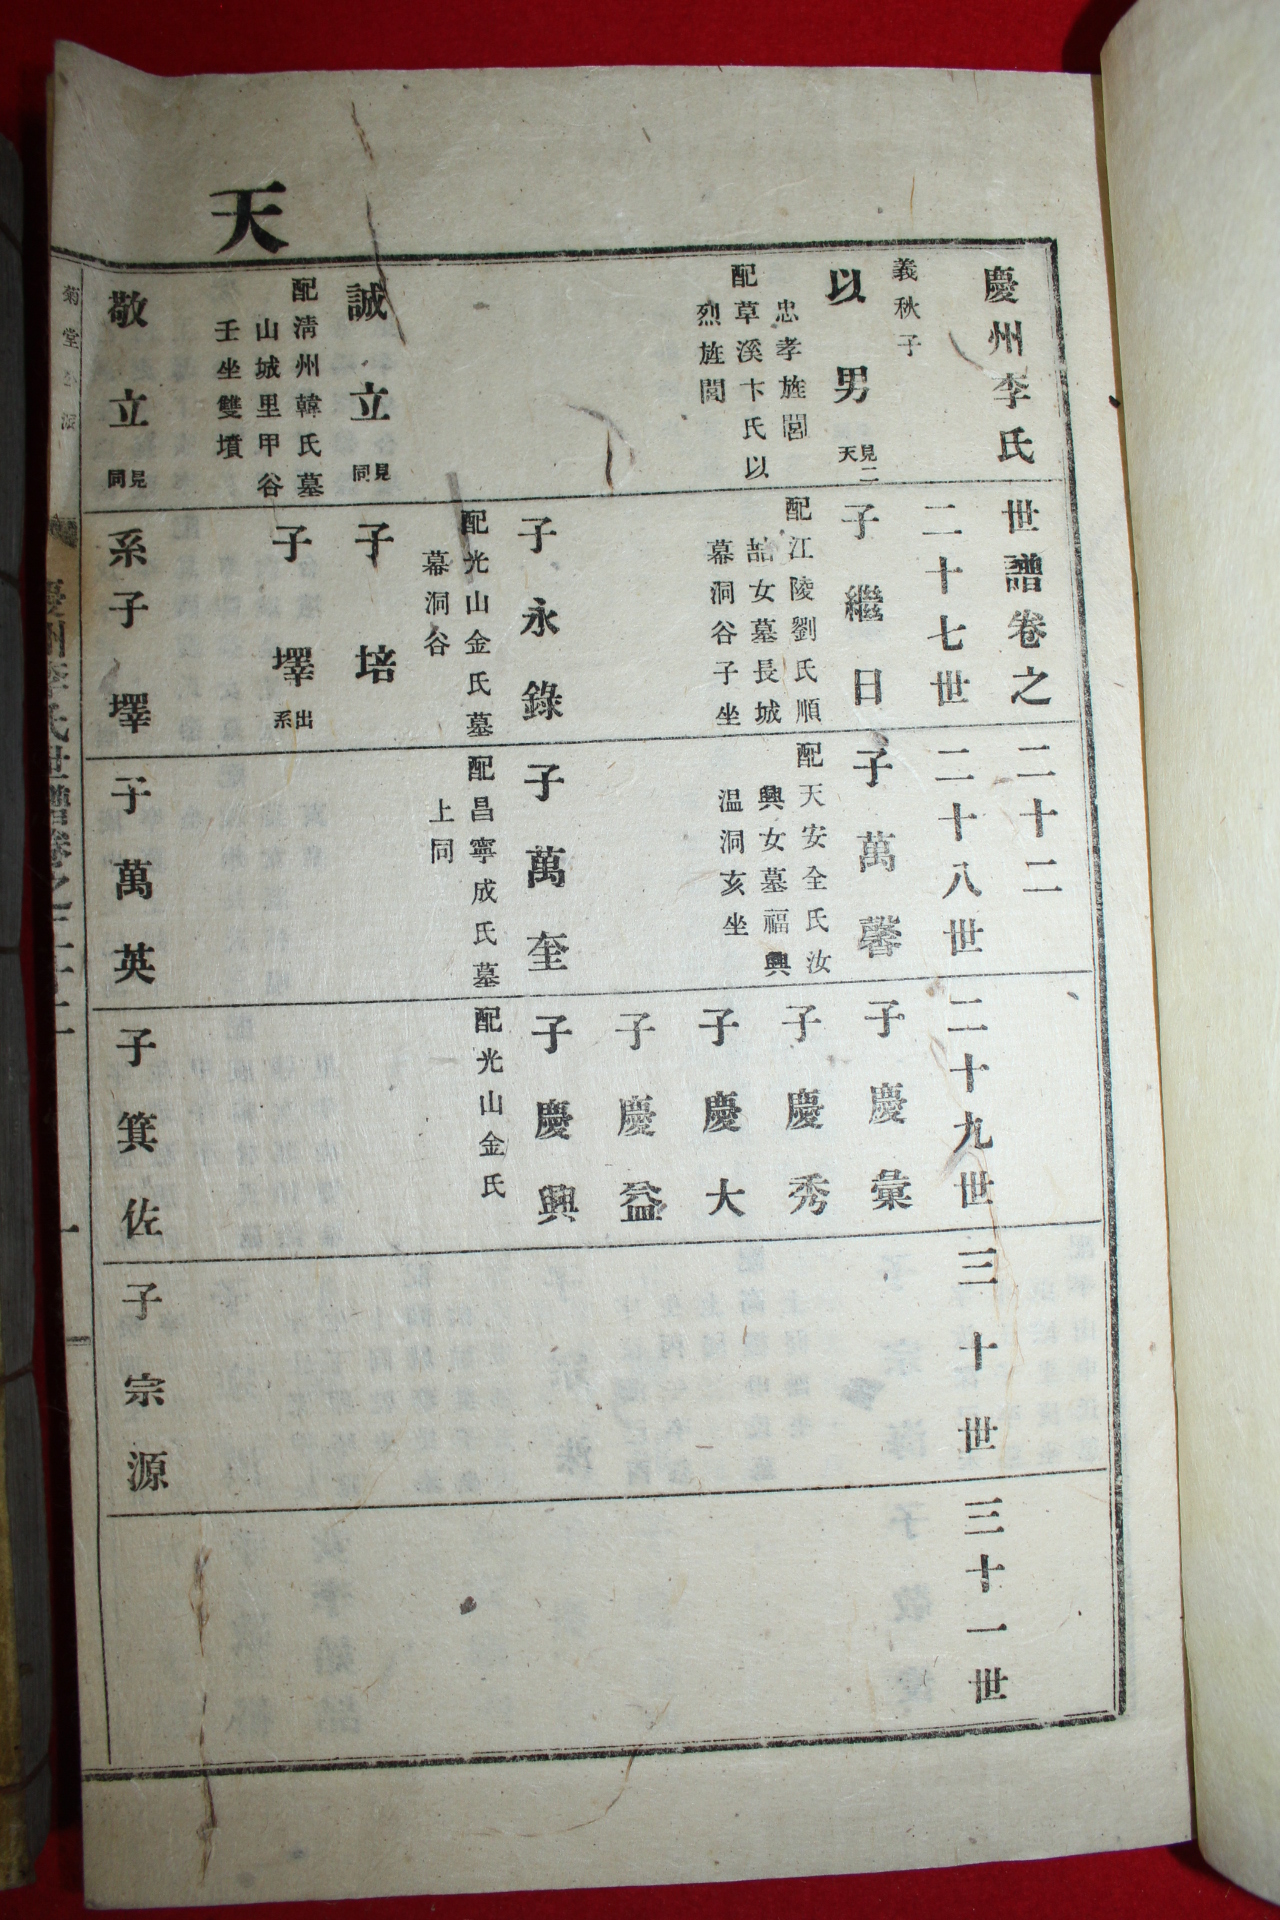 天
慶州李氏世譜卷之二十二
二十七世
二十八世
二十九世
三十世
三十一世
義秋子
以男
見二
天
忠孝旌閭
配草溪卞氏以
烈旌閭
誠立
見
同
配淸州韓氏墓
山城里甲谷
壬坐雙墳
敬立
見
同
子繼日
配江陵劉氏順
喆女墓長城
幕洞谷子坐
子永錄
配光山金氏墓
幕洞谷
子培
子墿
出
系
系子墿
子萬馨
配天安全氏汝
興女墓福興
溫洞亥坐
子萬奎
配昌寧成氏墓
上同
子萬英
子慶彙
子慶秀
子慶大
子慶益
子慶興
配光山金氏
子箕佐
子宗源
菊堂公派
慶州李氏世譜卷之二十二
一